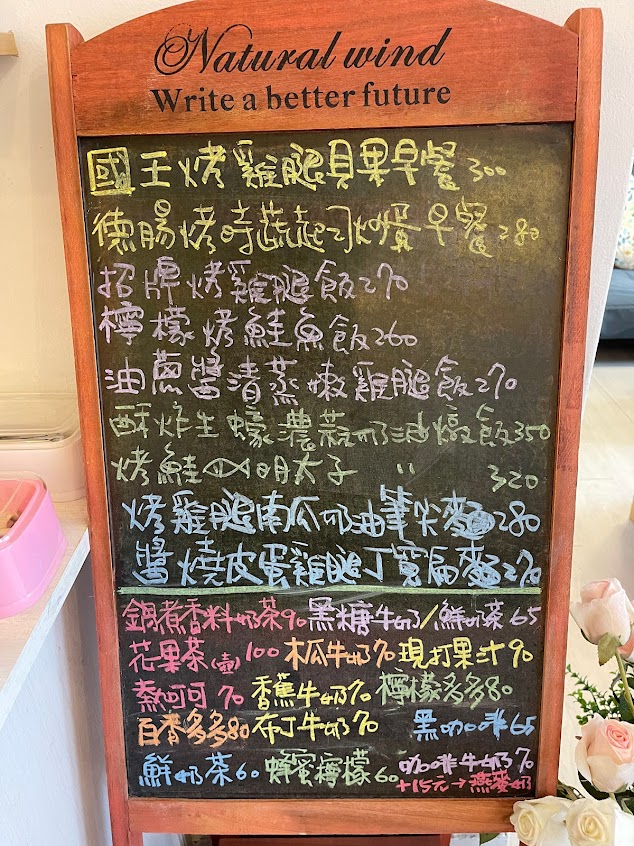 Natural wind
Write a better future
國王烤雞腿貝果早餐300
德腸烤時蔬起司炒蛋早餐280
招牌烤雞腿飯270
檸檬烤鮭魚飯260
油蔥醬清蒸嫩雞腿飯270
酥炸生蠔濃菇奶油燉飯350
烤鮭魚明太子 〃 320
烤雞腿南瓜奶油筆尖麵280
醬燒皮蛋雞腿丁寬扁麵270
鍋煮香料奶茶90 黑糖牛奶/鮮奶茶65
花果茶(壺)100 木瓜牛奶70 現打果汁90
熱可可70 香蕉牛奶70 檸檬多多80
百香多多80 布丁牛奶70 黑咖啡65
鮮奶茶60 蜂蜜檸檬60 咖啡牛奶70
+15元→燕麥奶